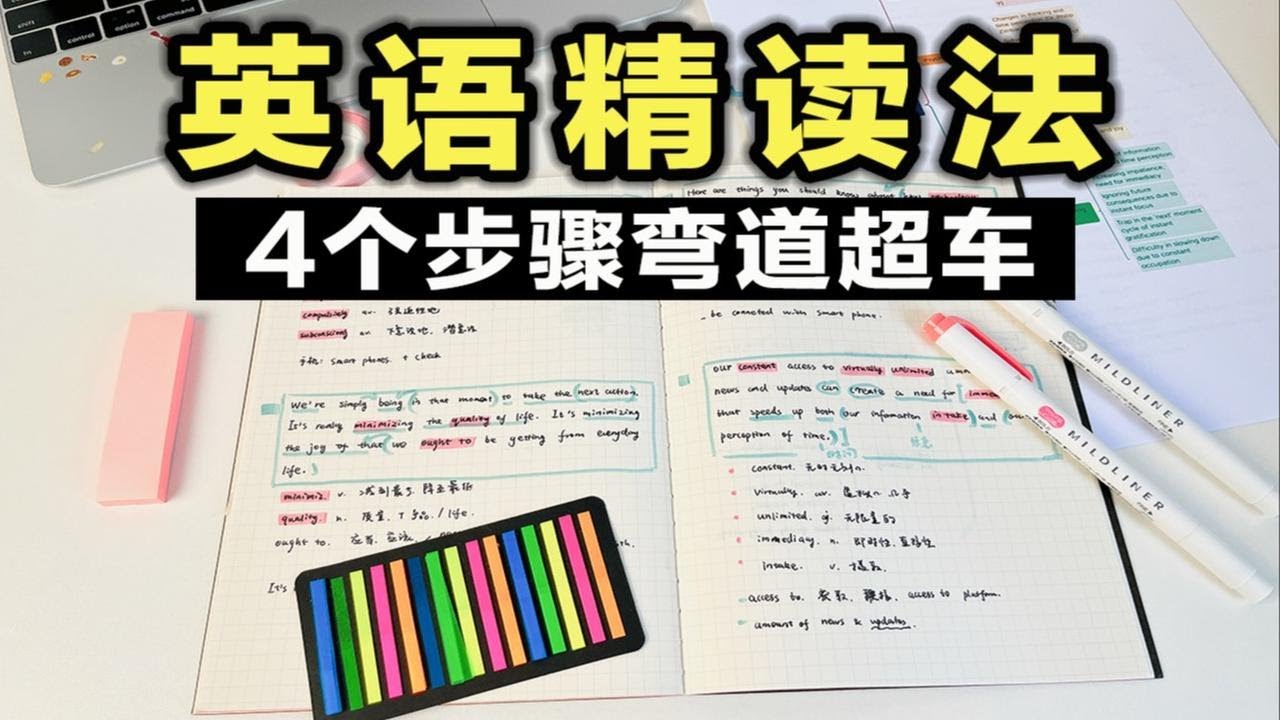 英语精读法
4个步骤弯道超车
shift
fn
control
option
command
Changes in thinking and
information
time perception
Increasing impatience,
need for immediacy
Ignoring future
consequences due to
instant focus
Trap in the 'next' moment
cycle of instant
gratification
Difficulty in slowing down
due to constant
occupation
and joy
Here are things you should know about how
compulsively av.
subconscious av. 下意识地, 潜意识
手机: smart phones. + check
We're simply being in that moment to take the next action.
It's really minimizing the quality of life. It's minimizing
the joy of that we ought to be getting from everyday
life.
minimiz. v. 减到最少, 降至最低
quality. n. 质量, / life.
ought to. 应当, 应该
It's
be conneted with smart phone.
our constant access to virtually unlimited
news and updates can create a need for
that speeds up both our information intake and our
perception of time.
时间
信息
constant. 无时无刻n.
virtually. av.
unlimited. aj. 无限量的
immediacy. n. 即时性, 直接性
intake. v. 摄取.
access to. 获取, access to platform.
amount of news & updates.
MILDLINER
MILDLINER